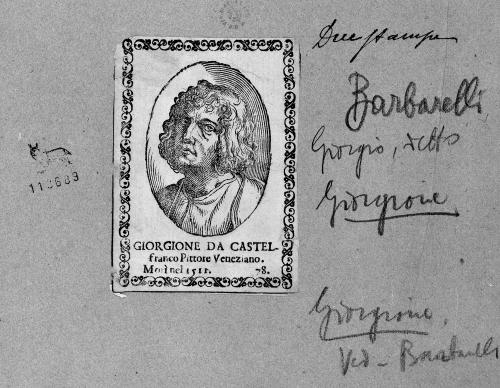 Due stampe
Barbarelli,
Giorgio, detto
Giorgione
113689
GIORGIONE DA CASTEL-
franco Pittore Veneziano.
Morì nel 1511. 78.
Giorgione,
Ved - Barbarelli